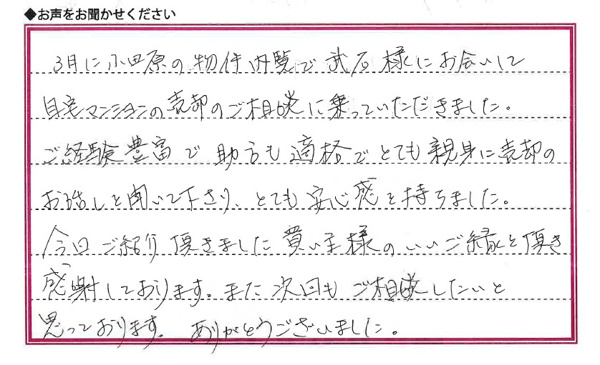 ◆お声をお聞かせください
3月に小田原の物件内覧で武石様にお会いして
自宅マンションの売却のご相談に乗っていただきました。
ご経験豊富で助言も適格でとても親身に売却の
お話しを聞いて下さり、とても安心感を持ちました。
今回ご紹介頂きました買い主様のいいご縁を頂き
感謝しております。また次回もご相談したいと
思っております。ありがとうございました。